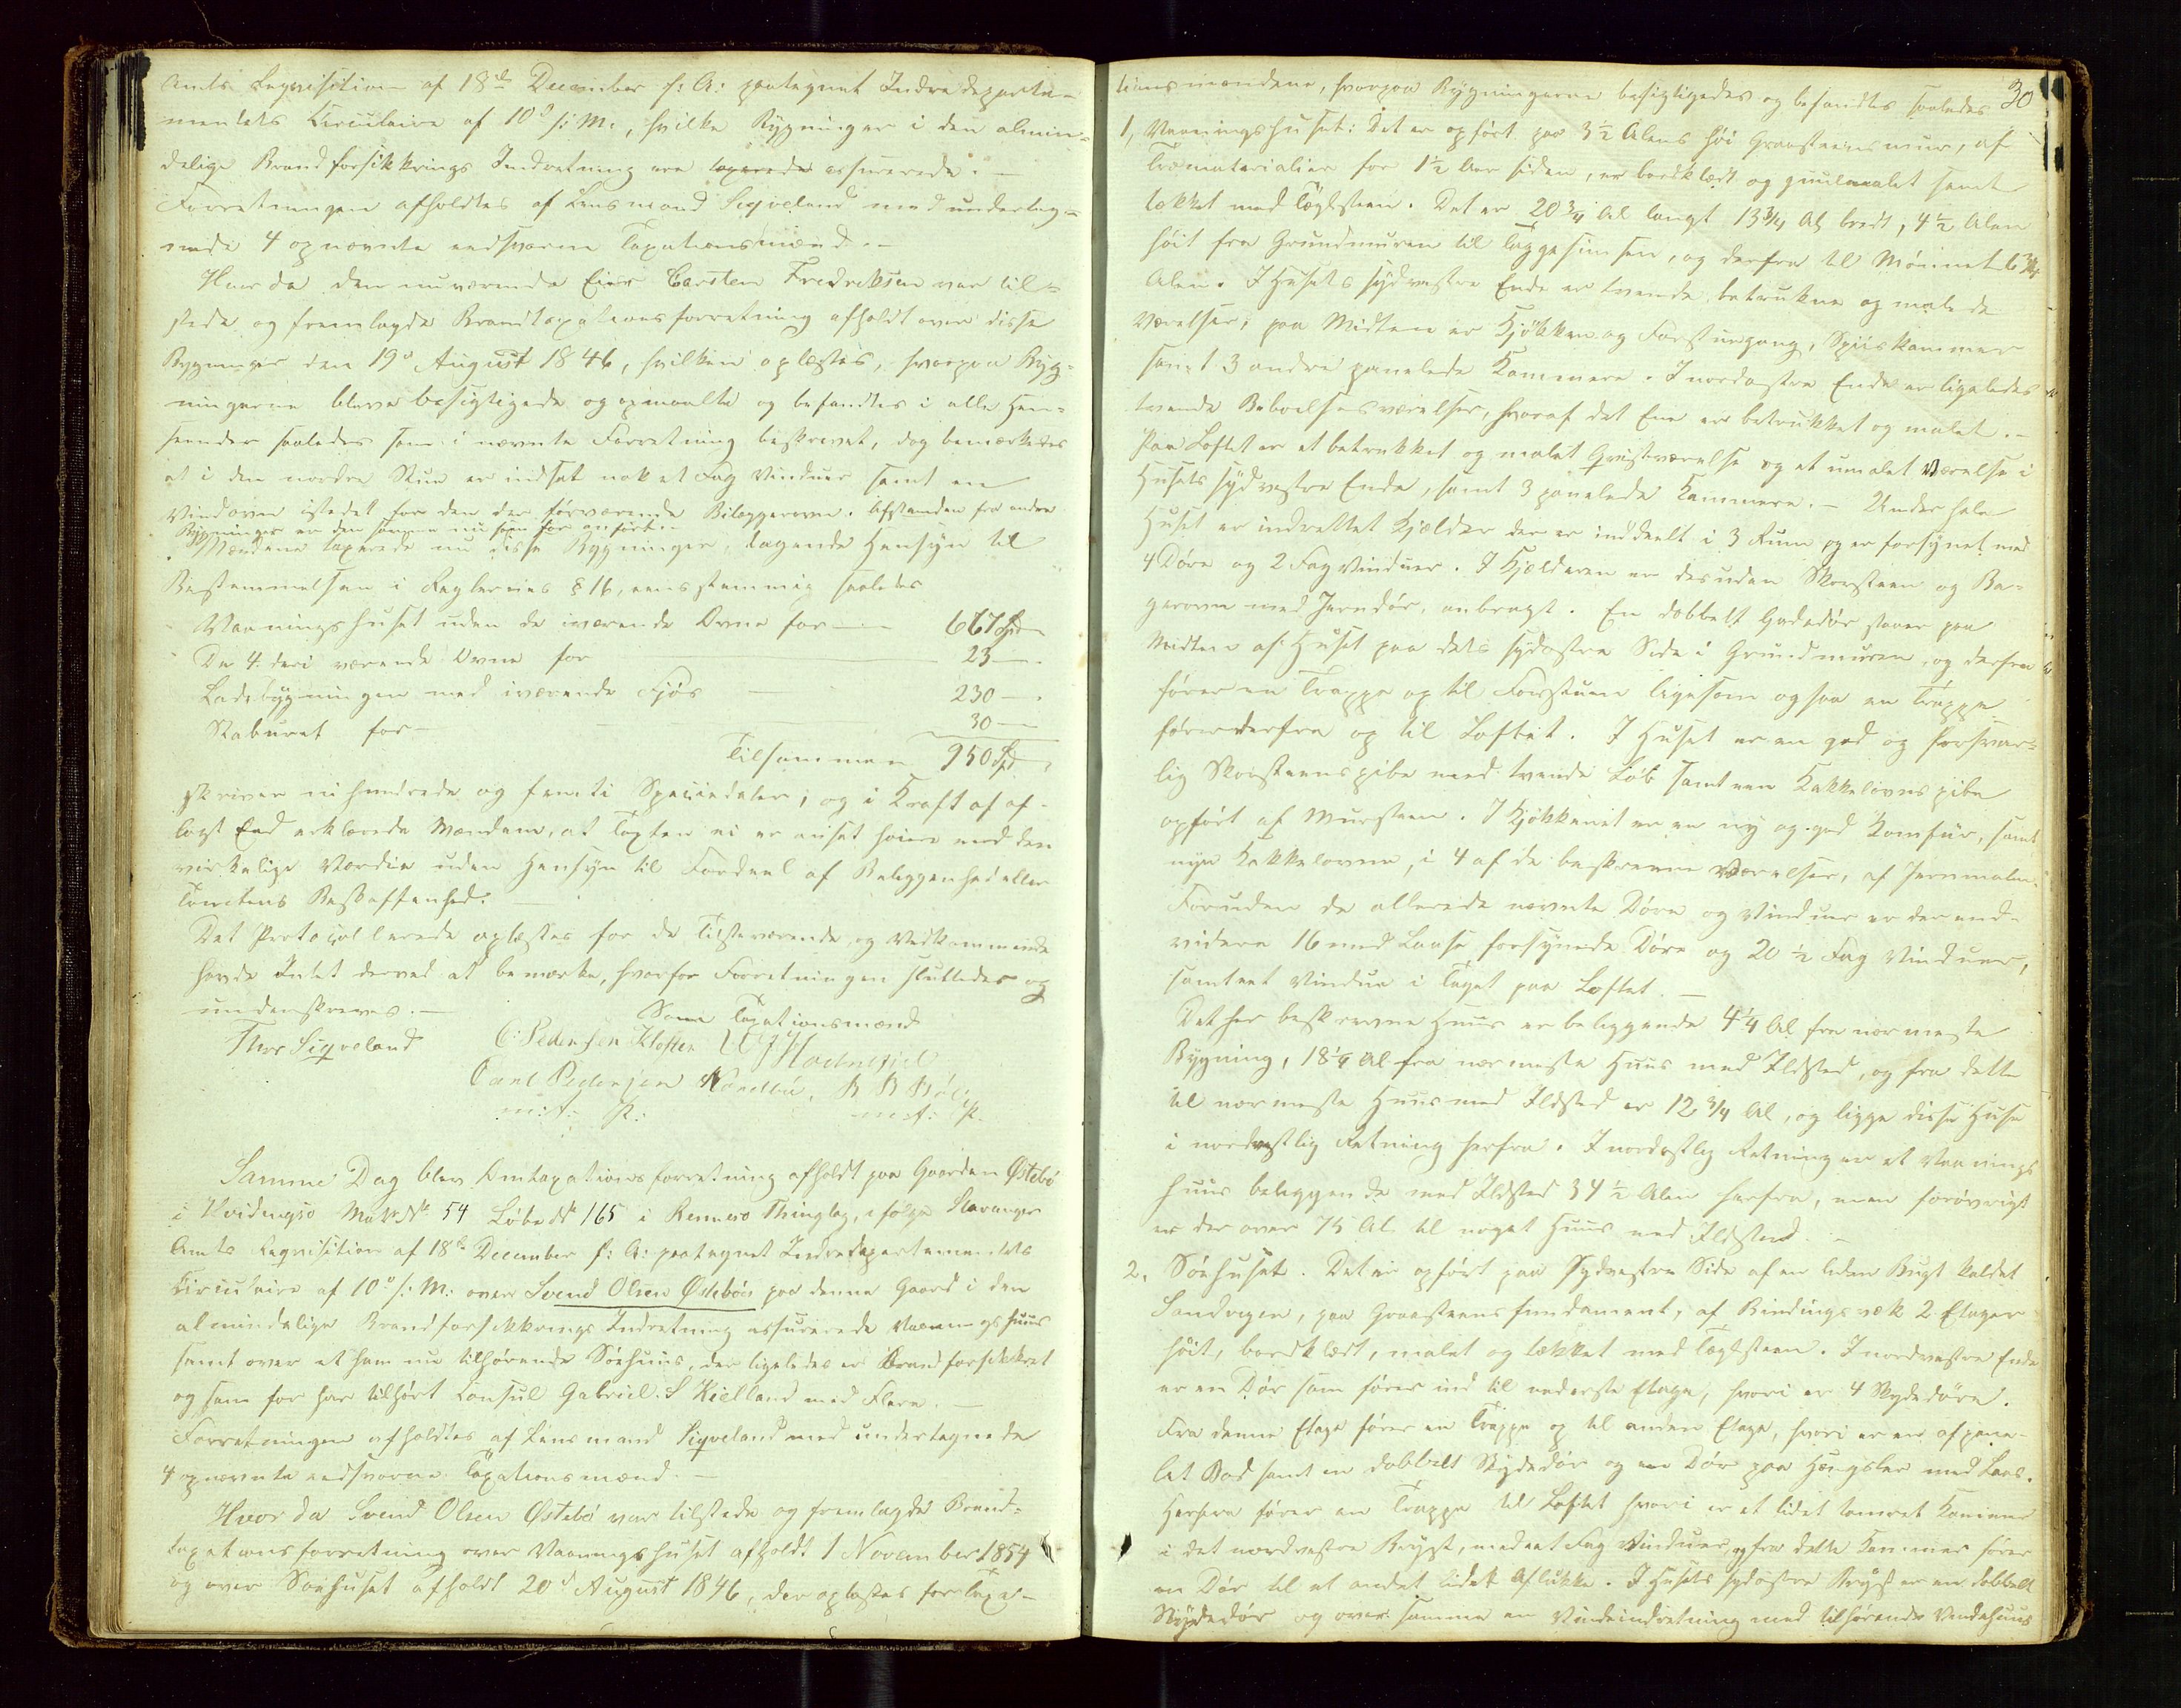 Amts Reqvisition af 18de December f: A: paategnet Indredeparte-
mentets Circulaire af 10de s: M:, hvilke Bygninger i den almin-
delige Brandforsikkrings Indretning ere taxerede assurerede. —
Forretningen afholdtes af Lensmand Siqveland med underteg-
nede 4 opnævnte eedsvorne Taxationsmænd. —
Hvor da den nuværende Eier Carsten Fredriksen var til-
stede og fremlagde Brandtaxationsforretning afholdt over disse
Bygninger den 19de August 1846, hvilken oplæstes, hvorpaa Byg-
ningerne bleve besigtigede og opmaalte og befandtes i alle Hen-
seender saaledes som i nævnte Forretning beskrevet, dog bemærkedes
at i den nordre Stue er indsat nok et Fag Vinduer samt en
Vindovn istedet for den der forværende Bilæggerovn. Afstanden fra andre
Bygninger er den samme nu som før anført. —
Mændene taxerede nu disse Bygninger, tagende Hensyn til
Bestemmelsen i Reglernes § 16, eensstemmig saaledes
Vaaningshuset uden de iværende Ovne for — 667 Spd
De 4 deri værende Ovne for — 23 —
Ladebygningen med iværende Fjøs — 230 —
Staburet for — 30 —
Tilsammen 950 Spd
skriver nihundrede og femti Speciedaler; og i Kraft af af-
lagt Eed erklærede Mændene, at Taxten ei er ansat høiere end den
virkelige Værdie uden Hensyn til Fordeel af Beliggenhed eller
Tomtens Beskaffenhed.
Det Protocollerede oplæstes for de Tilstæværende, og Vedkommende
havde Intet derved at bemærke, hvorfor Forretningen sluttedes og
underskreves. —
Som Taxationsmænd
Thor Siqveland C: Pedersen Kloster
Carl Pedersen
m: f: P: m: f: P.
Samme Dag blev Omtaxationsforretning afholdt paa Gaarden Østebø
i Hvidingsø Matr: No 54 Løbe No 165 i Rennesø Thinglag, ifølge Stavanger
Amts Reqvisition af 18de December f: A: paategnet Indredepartementets
Circulaire af 10de s: M: over Svend Olsen Østebøs paa denne Gaard i den
almindelige Brandforsikkrings Indretning assurerede Vaaningshuus
samt over et ham nu tilhørende Søehuus, der ligeledes er Brandforsikkret
og som før har tilhørt Consul Gabriel S Kielland med Flere. —
Forretningen afholdtes af Lensmand Siqveland med undertegnede
4 opnævnte eedsvorne Taxationsmænd. —
Hvor da Svend Olsen Østebø var tilstede og fremlagde Brand-
taxationsforretning over Vaaningshuset afholdt 1 November 1854
og over Søehuset afholdt 20de August 1846, der oplæstes for Taxa-
30
tionsmændene, hvorpaa Bygningerne besigtigedes og befandtes saaledes
1, Vaaningshuset: Det er opført paa 3½ Alens høi Graasteensmuur, af
Træmaterialier for 1½ Aar siden, er bordklædt og guulmalet samt
tækket med Tæglsteen. Det er 20¾ Al langt 13¾ Al bredt, 4½ Alen
høit fra Grundmuren til Taggesimsen, og derfra til Mønnet 6¾
Alen. I Husets sydvestre Ende er tvende betrukne og malede
Værelser; paa Midten er Kjøkken og Forstuegang, Spiiskammer
samt 3 andre panelede Kammere. I nordostre Ende er ligeledes
tvende Beboelsesværelser, hvoraf det Ene er betrukket og malet. —
Paa Loftet er et betrukket og malet Qvistværelse og et umalet Værelse i
Husets sydvestre Ende, samt 3 panelede Kammere. — Under hele
Huset er indrettet Kjælder der er inddeelt i 3 Rum og er forsynet med
4 Døre og 2 Fag Vinduer. I Kjælderen er desuden Skorsteen og Ba-
gerovn med Jerndør, anbragt. En dobbelt Gadedør staaer paa
Midten af Huset paa dets sydostre Side i Grundmuren, og derfra
fører en Trappe op til Forstuen ligesom ogsaa en Trappe
fører derfra op til Loftet. I Huset er en god og forsvar-
lig Skorsteenspibe med tvende Løb samt een Kakkelovnspibe
opført af Muursteen. I Kjøkkenet er en ny og god Komfur, samt
nye Kakkelovne, i 4 af de beskrevne Værelser, af Jernmalm.
Foruden de allerede nævnte Døre og Vinduer er der end-
videre 16 med Laase forsynede Døre og 20½ Fag Vinduer,
samt et Vindue i Taget paa Loftet. —
Det her beskrevne Huus er beliggende 4¼ Al fra nærmeste
Bygning, 18¼ Al fra nærmeste Huus med Ildsted, og fra dette
til nærmeste Huus med Ildsted er 12¾ Al, og ligge disse Huse
i nordvestlig Retning herfra. I nordostlig Retning er et Vaanings
huus beliggende med Ildsted 34½ Alen herfra, men forøvrigt
er der over 75 Al til noget Huus med Ildsted. —
2, Søehuset. Det er opført paa Sydvestre Side af en liden Bugt kaldet
Sandvigen, paa Graasteens fundament, af Bindingsværk 2 Etager
høit, bordklædt, malet og tækket med Tæglsteen. I nordvestre Ende
er en Dør som fører ind til nederste Etage, hvori er 4 Skydedøre.
Fra denne Etage fører en Trappe op til anden Etage, hvori er en afpane-
let Bod samt en dobbelt Skydedør og en Dør paa Hængsler med Laas.
Herfra fører en Trappe til Loftet hvori er et lidet tømret Kammer
i det nordvestre Bryst, med eet Fag Vinduer, og fra dette Kammer fører
en Dør til et andet lidet Aflukke. I Husets sydostre Bryst er en dobbelt
Skydedør og over samme en Vindeindretning med tilhørende Vindehuus